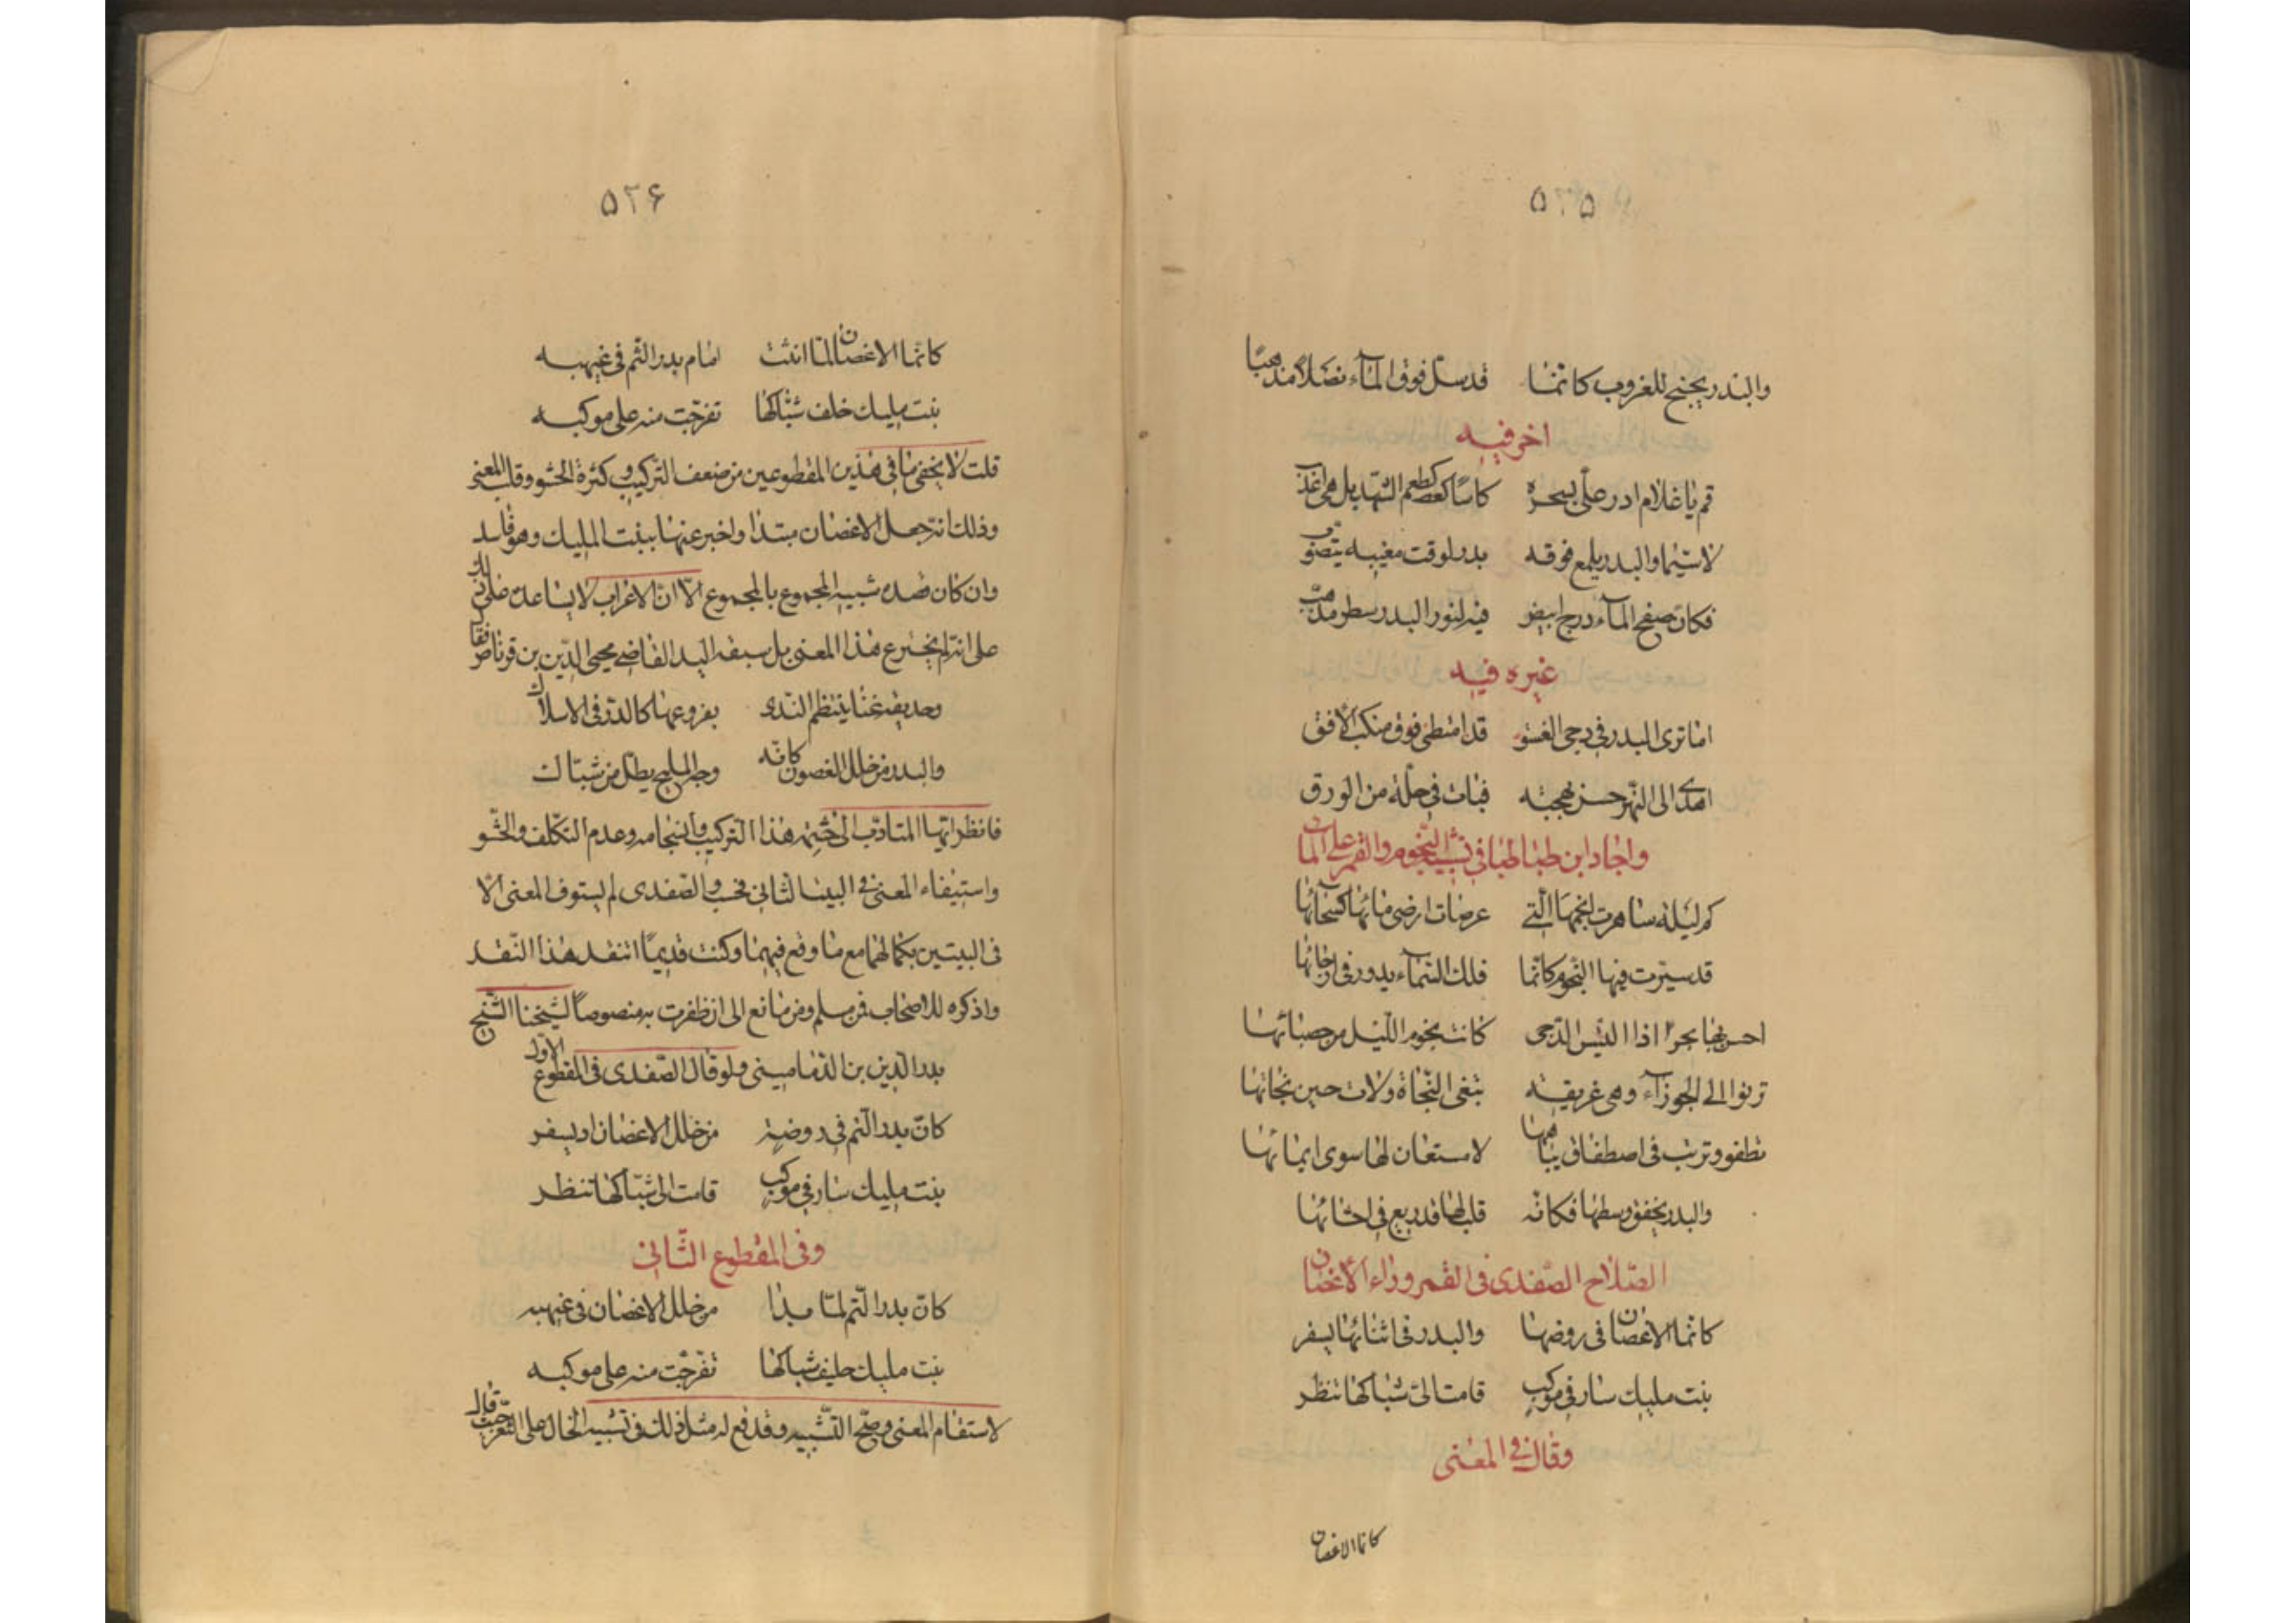 ۵۲۵
والبدر يجنح للغروب كانما قد سل فوق المآء نصلا مذهبا
اخر فيه
قم يا غلام ادر على بسحره كاسا كطعم الشهد بل هى اعذب
لا سيما والبدر يلمع فوقه بدر لوقت مغيبه يتصوب
فكان صفح المآء درج ابيض فيه لنور البدر سطر مذهب
غيره فيه
اما ترى البدر فى دجى الغسق قد امتطى فوق منكب الافق
اهدى الى النهر حسن بهجته فبات فى حلة من الورق
واجاد ابن طباطبا فى تشبيه النجوم والقمر على المآء
كم ليلة ساهرت انجمها التى عرضات ارض مائها كسمائها
قد سيرت فيها النجوم كانما فلك السمآء يدور فى ارجائها
احسن بها بحرا اذا التبس الدجى كانت نجوم الليل من حصبائها
ترنوا الى الجوزآء وهى غريقة تبغى النجاة ولات حين نجاتها
تطفو وترسب فى اصطفاق مياهها لا مستعان لها سوى ايمائها
والبدر يخفق وسطها فكانه قلب لها قد ريع فى احشائها
الصلاح الصفدى فى القمر وراء الاغصان
كانما الاغصان فى روضها والبدر فى اثنائها يسفر
بنت مليك سار فى موكب قامت الى شباكها تنظر
وقال فى المعنى
كانما الاغصان
۵۲۶
كانما الاغصان لما انثنت امام بدر التم فى غيهبه
بنت مليك خلف شباكها تفرجت منه على موكبه
قلت لا يخفى ما فى هذين المقطوعين من ضعف التركيب وكثرة الحشو وقلب المعنى
وذلك انه جعل الاغصان مبتدا واخبر عنها ببنت المليك وهو فاسد
وان كان قصده تشبيه المجموع بالمجموع الا ان الاعراب لا يساعده على ذلك
على انه لم يخترع هذا المعنى بل سبقه اليه القاضى محيى الدين بن قرناص فقال
وحديقة غناء ينتظم الندى بفروعها كالدر فى الاسلاك
والبدر من خلل الغصون كانه وجه المليح يطل من شباك
فانظر ايها المتادب الى حشمة هذا التركيب وانسجامه وعدم التكلف والحشو
واستيفاء المعنى فى البيت الثانى فحسب والصفدى لم يستوف المعنى الا
فى البيتين بكمالهما مع ما وقع فيهما وكنت قديما انتقد هذا النقد
واذكره للاصحاب فمن مسلم ومن مانع الى ان ظفرت به منصوصا لشيخنا الشيخ
بدر الدين بن الدمامينى ولو قال الصفدى فى المقطوع الاول
كان بدر التم فى روضة من خلل الاغصان اذ يسفر
بنت مليك سار فى موكب قامت الى شباكها تنظر
وفى المقطوع الثانى
كان بدر التم لما بدا من خلل الاغصان فى غيهبه
بنت مليك خلف شباكها تفرجت منه على موكبه
لاستقام المعنى وصح التشبيه وقد وقع له مثل ذلك فى تشبيه الخال على الثغر حيث قال